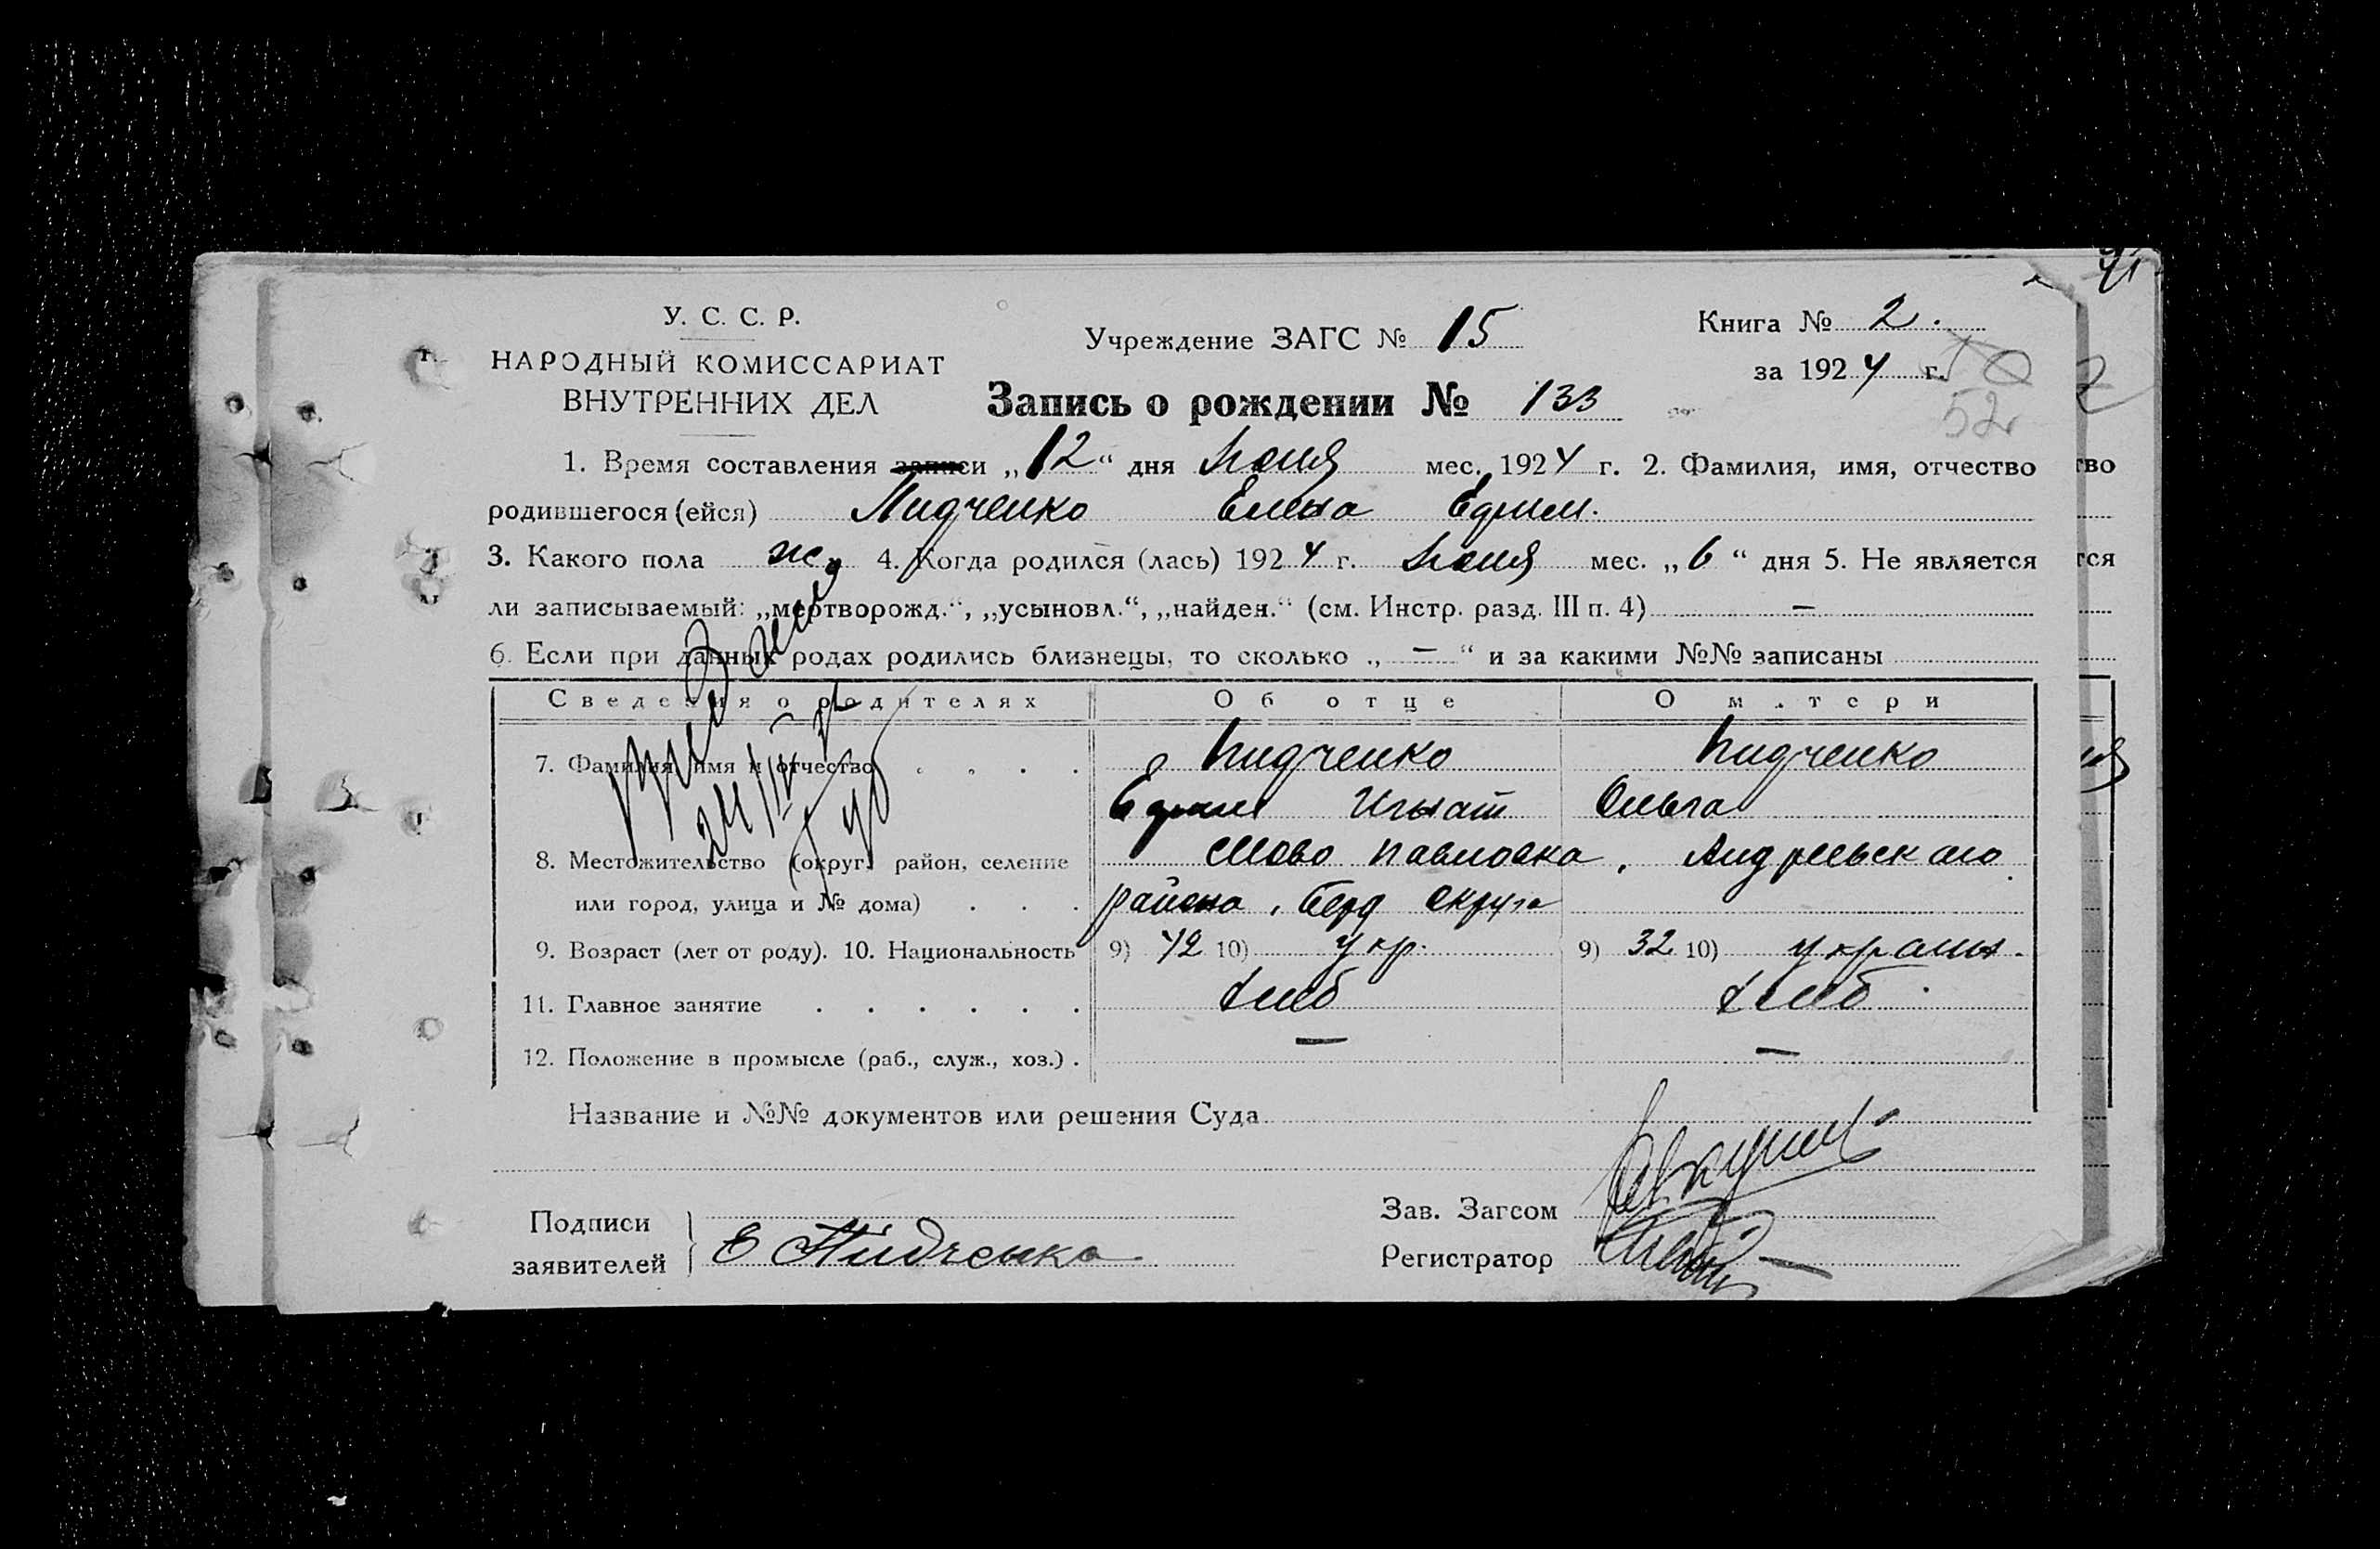 У. С. С. Р.
НАРОДНЫЙ КОМИССАРИАТ
ВНУТРЕННИХ ДЕЛ
Учреждение ЗАГС № 15
Книга № 2.
за 1924 г.
52
Запись о рождении № 133
1. Время составления записи „12“ дня Июня мес. 1924 г. 2. Фамилия, имя, отчество
родившегося (ейся) Пидченко Елена Ефим.
3. Какого пола ж. 4. Когда родился (лась) 1924 г. Июня мес. „6“ дня 5. Не является
ли записываемый: „мертворожд.“, „усыновл.“, „найден.“ (см. Инстр. разд. III п. 4) —
6. Если при данных родах родились близнецы, то сколько „—“ и за какими №№ записаны
Сведения о родителях Об отце О матери
7. Фамилия, имя и отчество . . . . Пидченко Пидченко
Ефим Игнат Ольга
8. Местожительство (округ, район, селение Ново павловка, Андреевского
или город, улица и № дома) . . . района, Берд округа
9. Возраст (лет от роду). 10. Национальность 9) 42 10) укр. 9) 32 10) украин.
11. Главное занятие . . . . . . хлеб хлеб.
12. Положение в промысле (раб., служ., хоз.) . — —
Название и №№ документов или решения Суда
Подписи
заявителей
Е Пидченко
Зав. Загсом
Регистратор